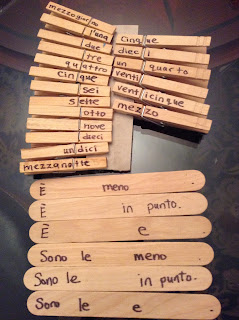 mezzogiorno
l'una
due
tre
quattro
cinque
sei
sette
otto
nove
dieci
undici
mezzanotte
cinque
dieci
un quarto
venti
venticinque
mezzo
È meno
È in punto.
È e
Sono le meno
Sono le in punto.
Sono le e